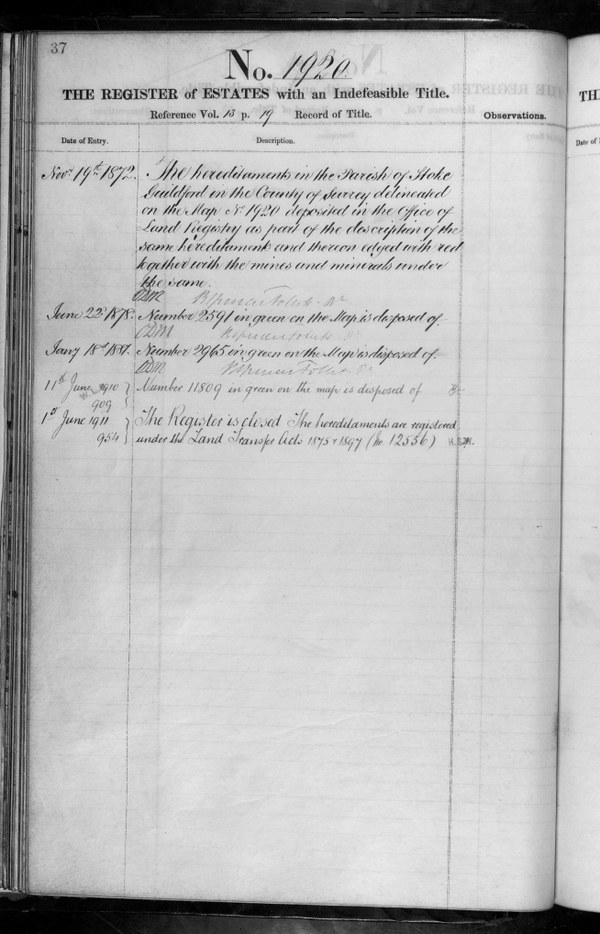 37
No. 1920.
THE REGISTER of ESTATES with an Indefeasible Title.
Reference Vol. 13 p. 19 Record of Title.
Observations.
Date of Entry.
Description.
Novr 19th 1872. The hereditaments in the Parish of Stoke
Guildford in the County of Surrey delineated
on the Map No 1920 deposited in the Office of
Land Registry as part of the description of the
same hereditament and thereon edged with red
together with the mines and minerals under
the same.
June 22d 1878. Number 2591 in green on the Map is disposed of.
Jany 18th 1881. Number 2965 in green on the Map is disposed of.
11th June 1910 Number 11809 in green on the map is disposed of
909
1st June 1911 The Register is closed The hereditaments are registered
954 under the Land Transfer Acts 1875 & 1897 (No. 12556)
TH
Date of